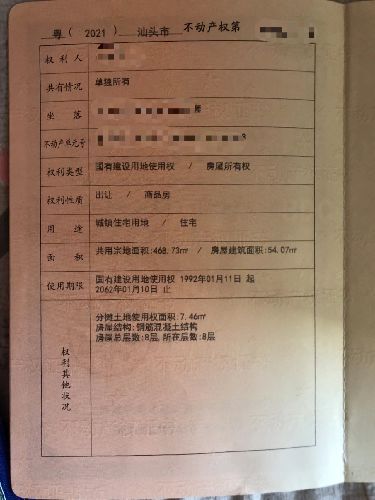 粤（ 2021 ） 汕头市 不动产权第
权利人
共有情况 单独所有
坐落
不动产单元号
权利类型 国有建设用地使用权 / 房屋所有权
权利性质 出让 / 商品房
用途 城镇住宅用地 / 住宅
面积 共用宗地面积:468.73㎡ / 房屋建筑面积:54.07㎡
使用期限 国有建设用地使用权 1992年01月11日 起
2062年01月10日 止
权利其他状况
分摊土地使用权面积:7.46㎡
房屋结构:钢筋混凝土结构
房屋总层数:8层,所在层数:8层